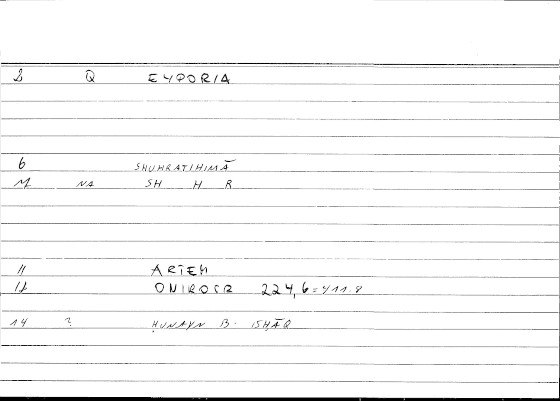 Q EYPORIA
6 SHUHRATIHIMĀ
M NA SH H R
11 ARTEM
12 ONIROCR 224,6=411.8
14 ? ḤUNAYN B. ISḤĀQ